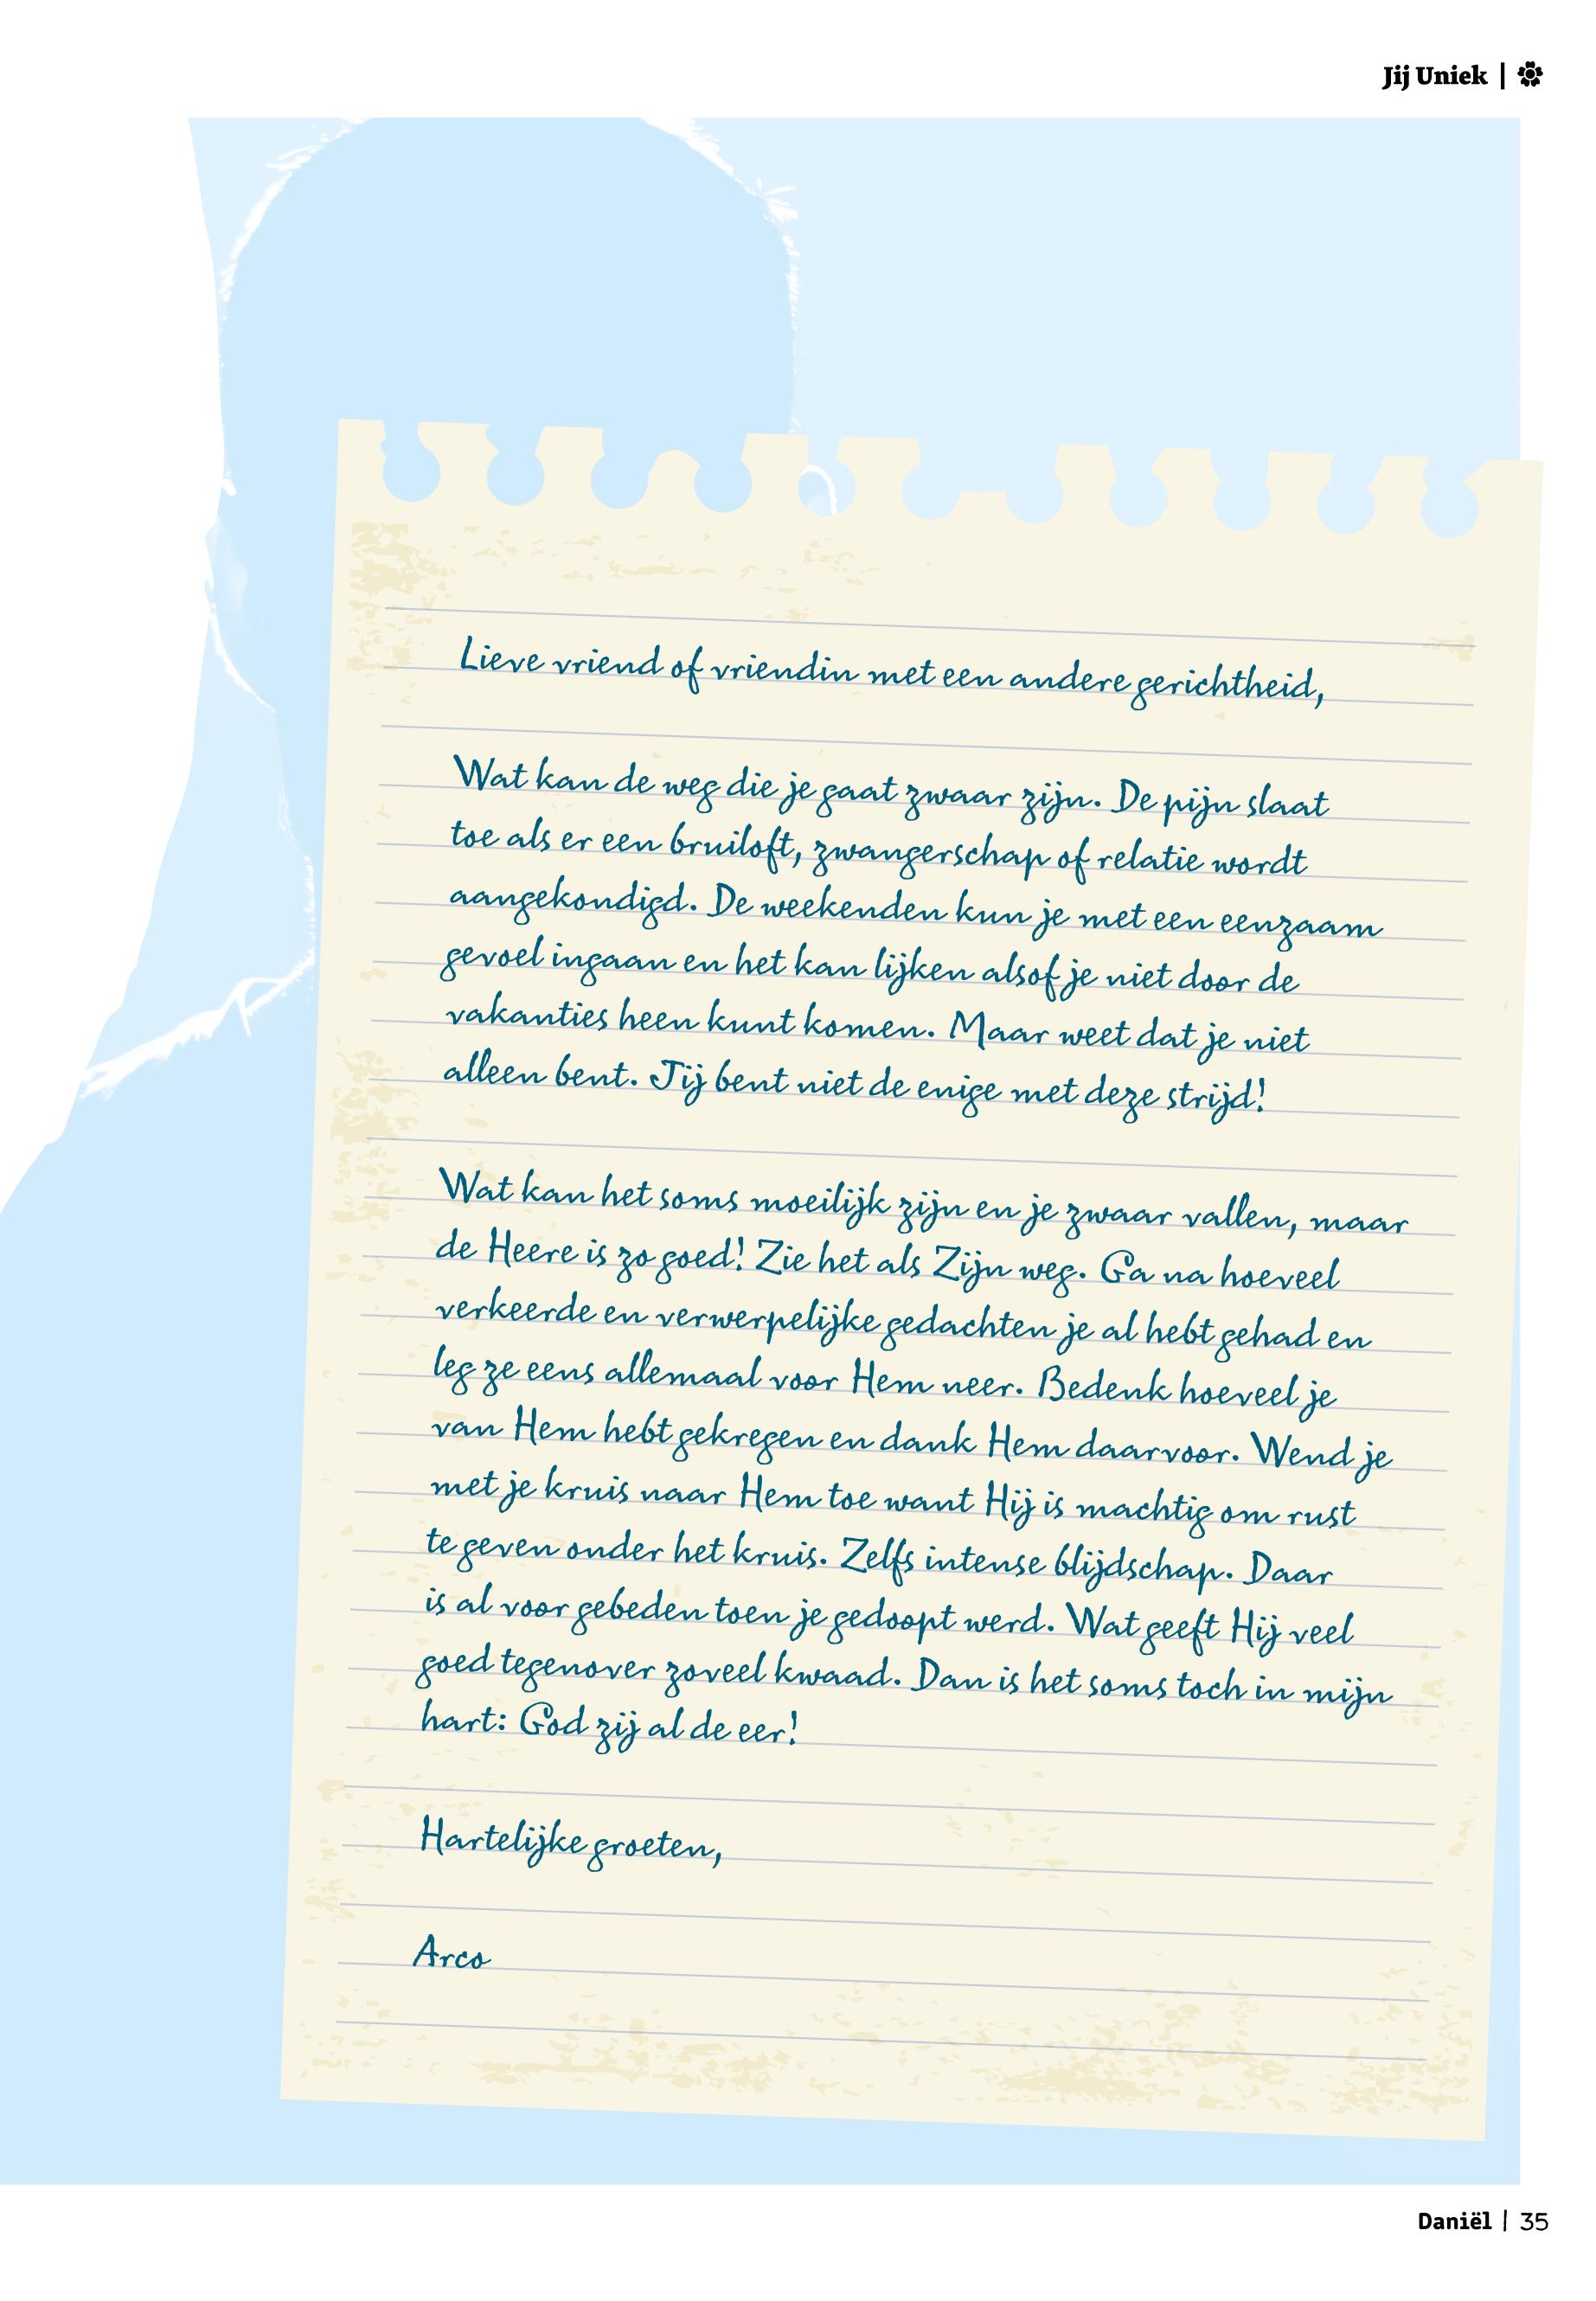 Jij Uniek |
Lieve vriend of vriendin met een andere gerichtheid,
Wat kan de weg die je gaat zwaar zijn. De pijn slaat
toe als er een bruiloft, zwangerschap of relatie wordt
aangekondigd. De weekenden kun je met een eenzaam
gevoel ingaan en het kan lijken alsof je niet door de
vakanties heen kunt komen. Maar weet dat je niet
alleen bent. Jij bent niet de enige met deze strijd!
Wat kan het soms moeilijk zijn en je zwaar vallen, maar
de Heere is zo goed! Zie het als Zijn weg. Ga na hoeveel
verkeerde en verwerpelijke gedachten je al hebt gehad en
leg ze eens allemaal voor Hem neer. Bedenk hoeveel je
van Hem hebt gekregen en dank Hem daarvoor. Wend je
met je kruis naar Hem toe want Hij is machtig om rust
te geven onder het kruis. Zelfs intense blijdschap. Daar
is al voor gebeden toen je gedoopt werd. Wat geeft Hij veel
goed tegenover zoveel kwaad. Dan is het soms toch in mijn
hart: God zij al de eer!
Hartelijke groeten,
Arco
Daniël | 35